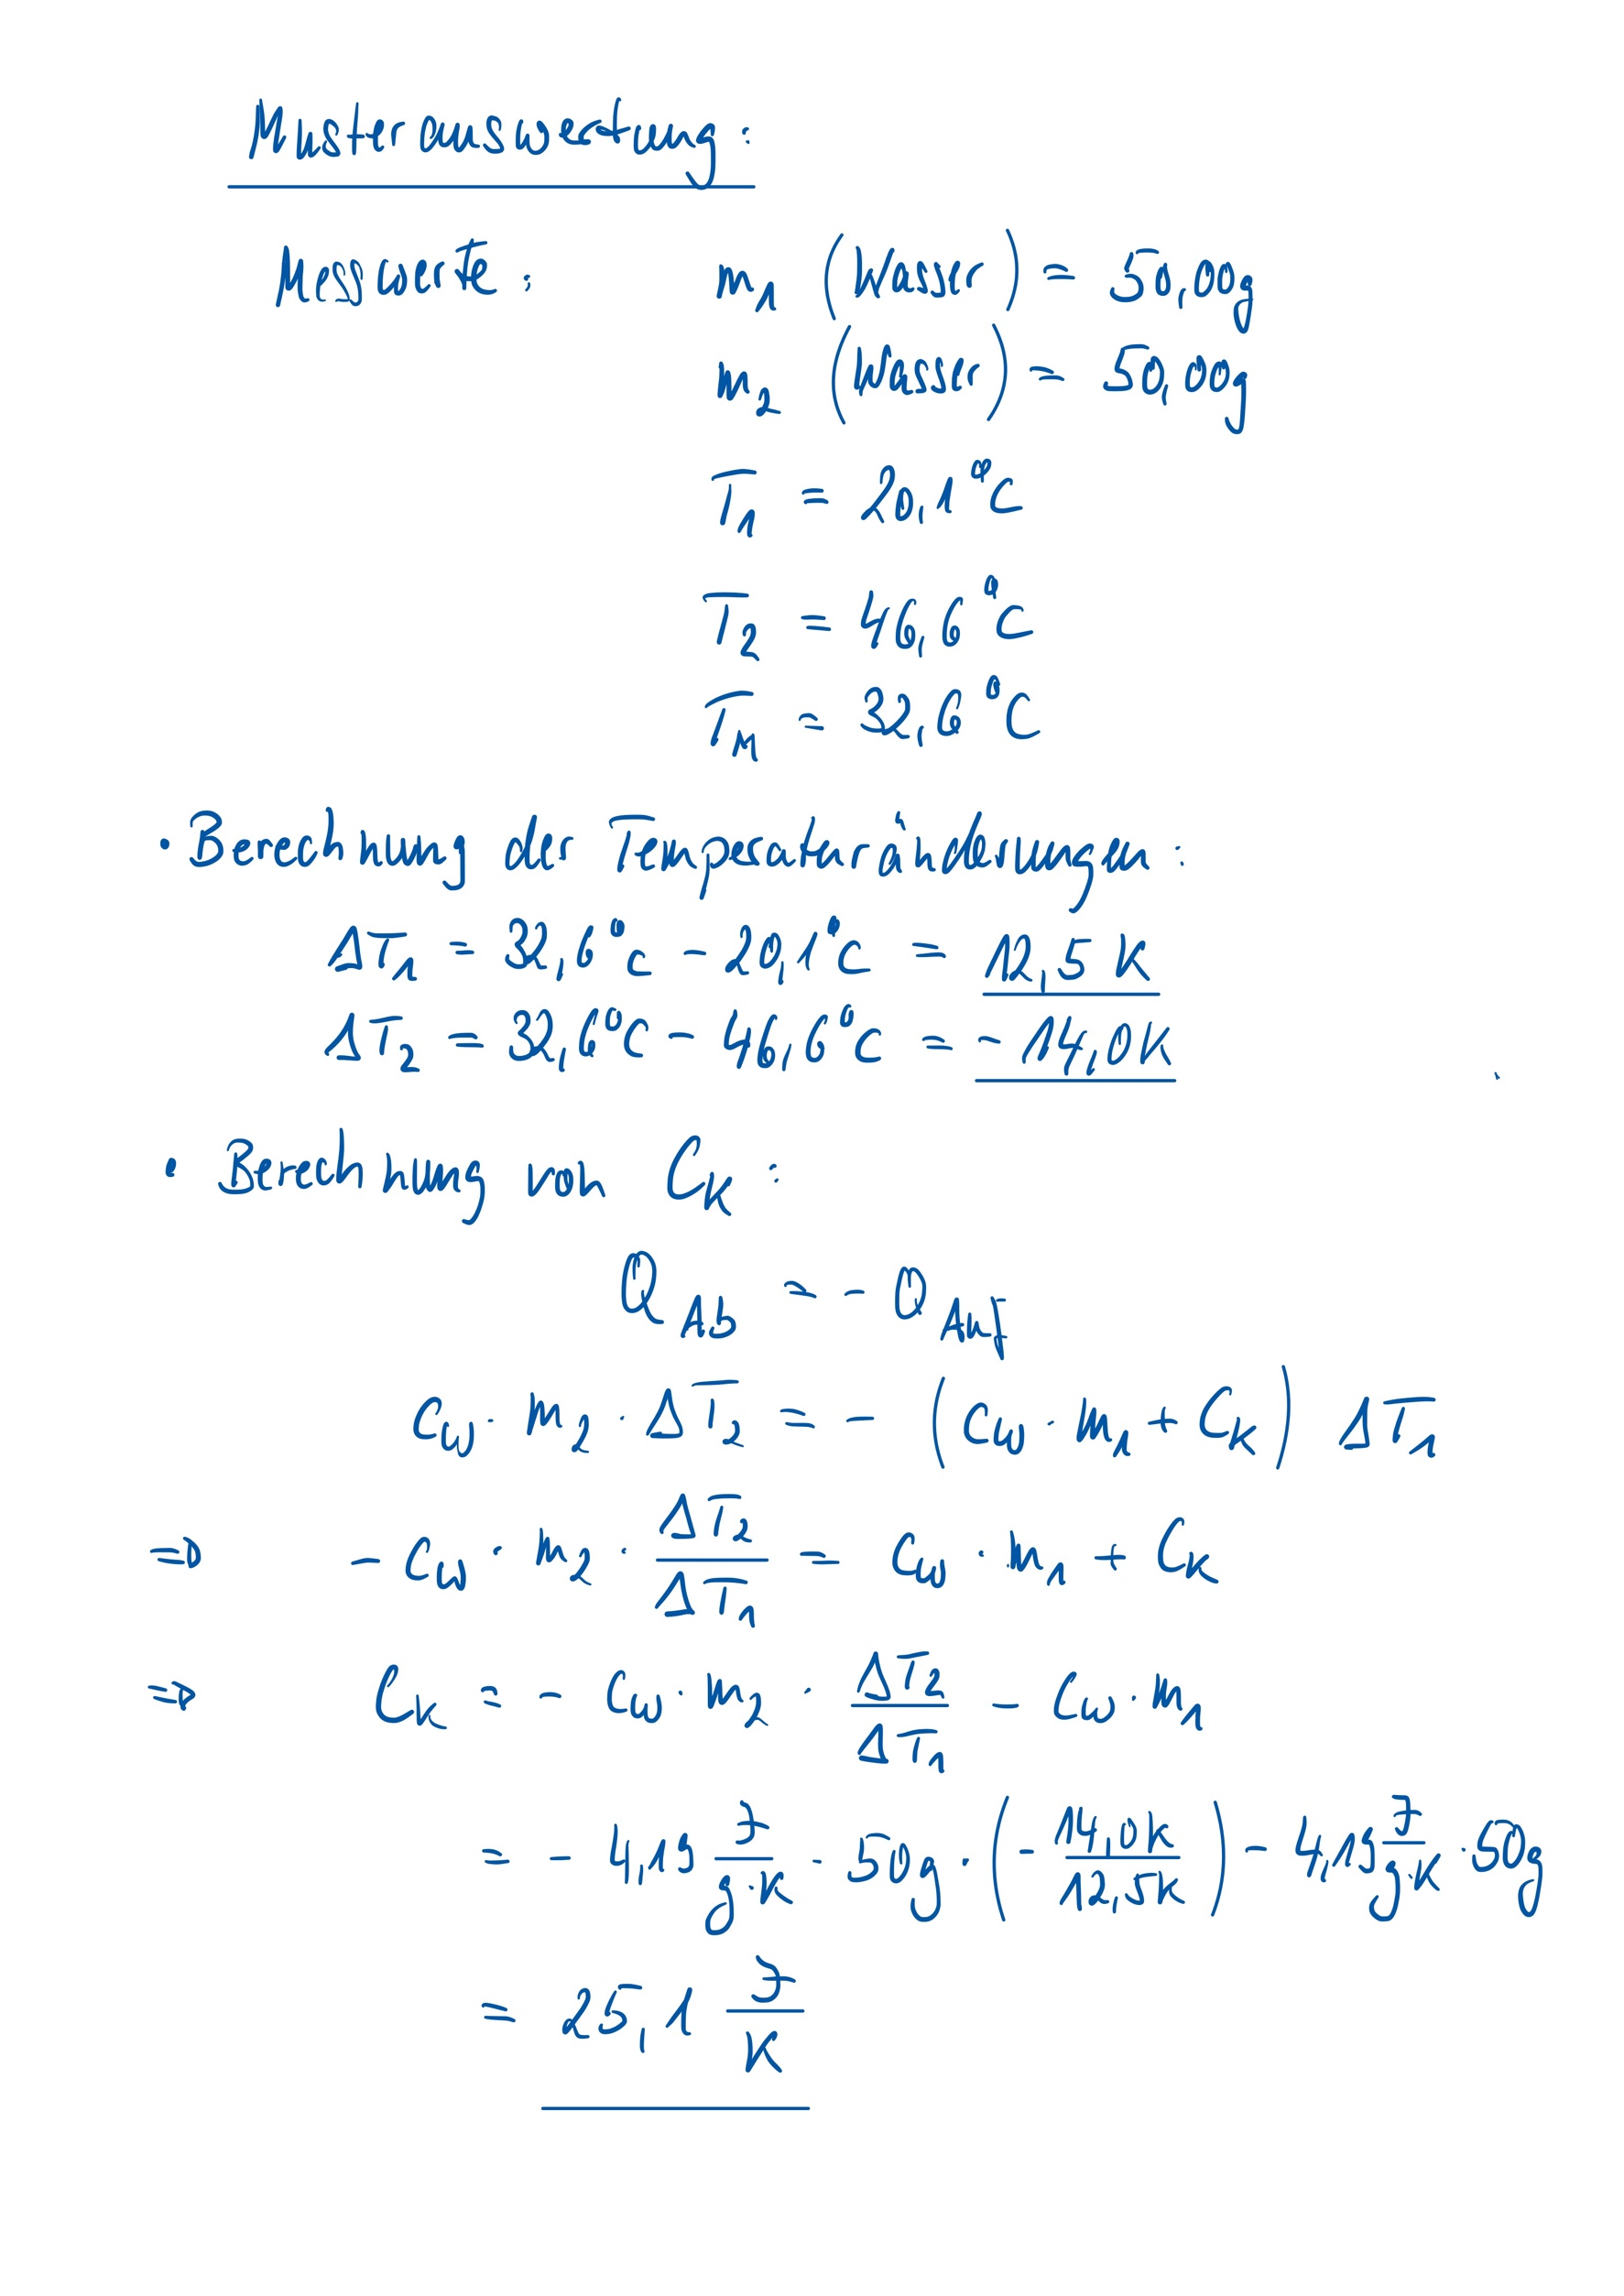 Musterauswertung:
Messwerte: m₁ (Wasser) = 50,00g
m₂ (Wasser) = 50,00g
T₁ = 20,1°C
T₂ = 46,6°C
T_M = 32,6°C
· Berechnung der Temperaturänderungen:
ΔT₁ = 32,6°C - 20,1°C = 12,5 K
ΔT₂ = 32,6°C - 46,6°C = -14,0K
· Berechnung von C_K:
Q_AB = - Q_Auf
c_W · m₂ · ΔT₂ = - (c_W · m₁ + C_K) ΔT₁
⇒ - c_W · m₂ · ΔT₂/ΔT₁ = c_W · m₁ + C_K
⇒ C_K = - c_W · m₂ · ΔT₂/ΔT₁ - c_W · m₁
= - 4,19 J/g·K · 50g · (- 14,0K/12,5K) - 4,19 J/g·K · 50g
= 25,1 J/K